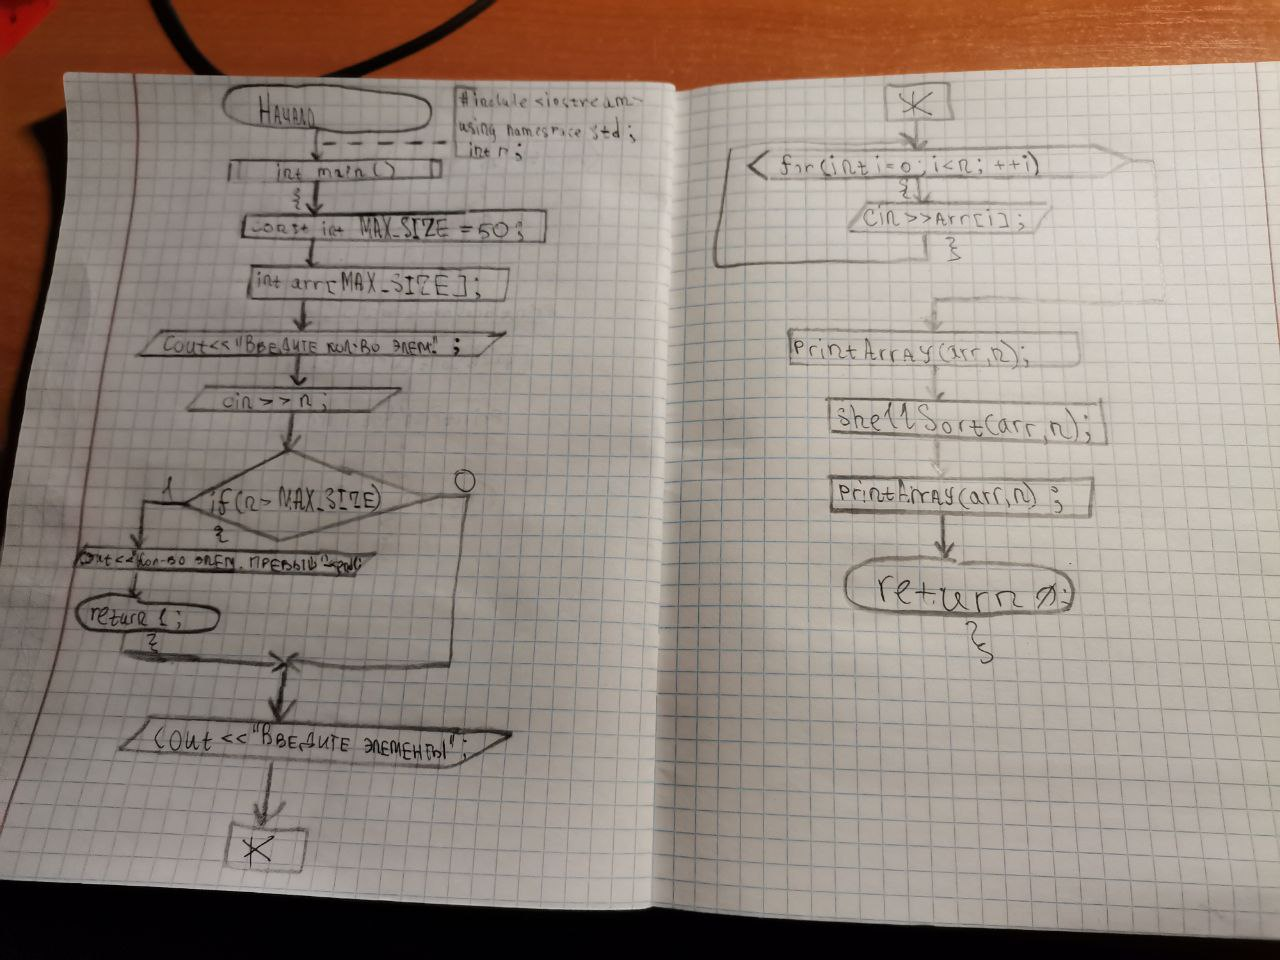 Начало
#include <iostream>
using namespace std;
int n;
int main()
{
const int MAX_SIZE = 50;
int arr[MAX_SIZE];
Cout<<"Введите кол-во элем" ;
cin>>n;
1
0
if(n> MAX_SIZE)
{
Cout<<"Кол-во элем. превыш
return 1;
}
Cout<<"Введите элементы";
*
*
for(int i=0; i<n; ++i)
{
Cin>>Arr[i];
}
PrintArrAy(arr,n);
shellSort(arr,n);
PrintArrAy(arr,n) ;
return 0;
}